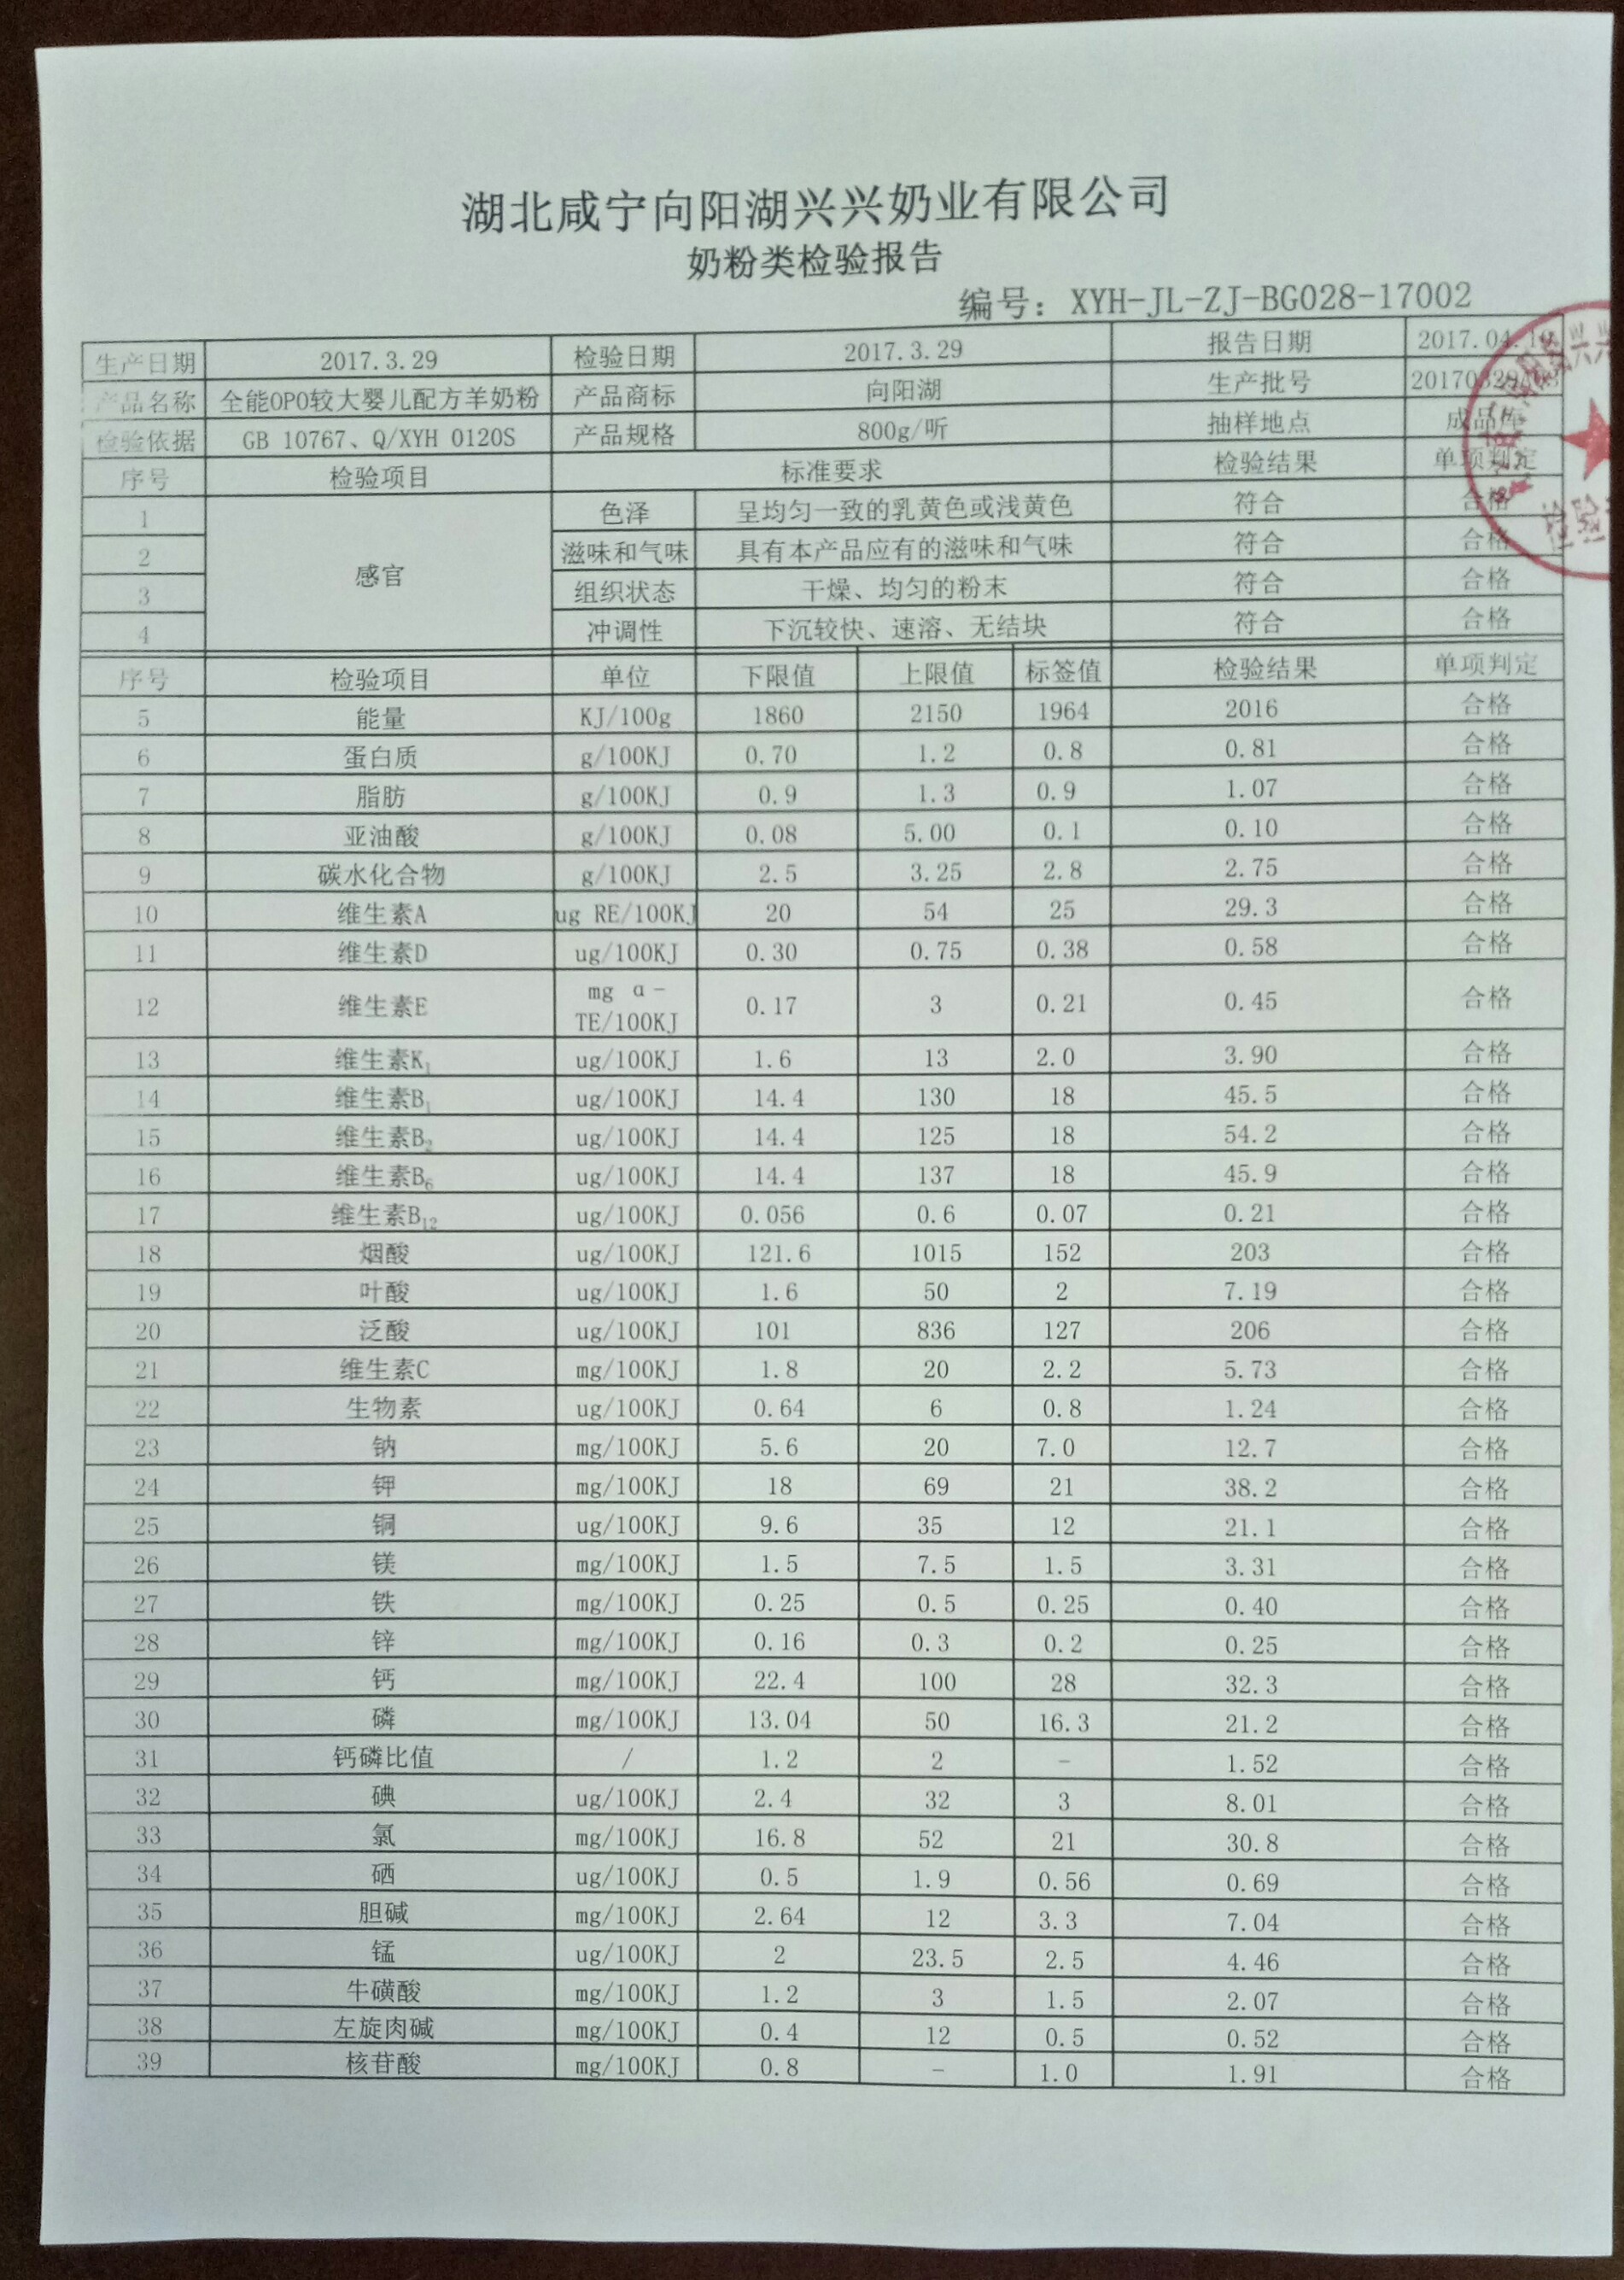 湖北咸宁向阳湖兴兴奶业有限公司
奶粉类检验报告
编号：XYH-JL-ZJ-BG028-17002
生产日期 2017.3.29 检验日期 2017.3.29 报告日期 2017.04.
产品名称 全能OPO较大婴儿配方羊奶粉 产品商标 向阳湖 生产批号 20170329
检验依据 GB 10767、Q/XYH 0120S 产品规格 800g/听 抽样地点 成品库
序号 检验项目 标准要求 检验结果 单项判定
1 感官 色泽 呈均匀一致的乳黄色或浅黄色 符合 合格
2 滋味和气味 具有本产品应有的滋味和气味 符合 合格
3 组织状态 干燥、均匀的粉末 符合 合格
4 冲调性 下沉较快、速溶、无结块 符合 合格
序号 检验项目 单位 下限值 上限值 标签值 检验结果 单项判定
5 能量 KJ/100g 1860 2150 1964 2016 合格
6 蛋白质 g/100KJ 0.70 1.2 0.8 0.81 合格
7 脂肪 g/100KJ 0.9 1.3 0.9 1.07 合格
8 亚油酸 g/100KJ 0.08 5.00 0.1 0.10 合格
9 碳水化合物 g/100KJ 2.5 3.25 2.8 2.75 合格
10 维生素A ug RE/100KJ 20 54 25 29.3 合格
11 维生素D ug/100KJ 0.30 0.75 0.38 0.58 合格
12 维生素E mg α-TE/100KJ 0.17 3 0.21 0.45 合格
13 维生素K₁ ug/100KJ 1.6 13 2.0 3.90 合格
14 维生素B₁ ug/100KJ 14.4 130 18 45.5 合格
15 维生素B₂ ug/100KJ 14.4 125 18 54.2 合格
16 维生素B₆ ug/100KJ 14.4 137 18 45.9 合格
17 维生素B₁₂ ug/100KJ 0.056 0.6 0.07 0.21 合格
18 烟酸 ug/100KJ 121.6 1015 152 203 合格
19 叶酸 ug/100KJ 1.6 50 2 7.19 合格
20 泛酸 ug/100KJ 101 836 127 206 合格
21 维生素C mg/100KJ 1.8 20 2.2 5.73 合格
22 生物素 ug/100KJ 0.64 6 0.8 1.24 合格
23 钠 mg/100KJ 5.6 20 7.0 12.7 合格
24 钾 mg/100KJ 18 69 21 38.2 合格
25 铜 ug/100KJ 9.6 35 12 21.1 合格
26 镁 mg/100KJ 1.5 7.5 1.5 3.31 合格
27 铁 mg/100KJ 0.25 0.5 0.25 0.40 合格
28 锌 mg/100KJ 0.16 0.3 0.2 0.25 合格
29 钙 mg/100KJ 22.4 100 28 32.3 合格
30 磷 mg/100KJ 13.04 50 16.3 21.2 合格
31 钙磷比值 / 1.2 2 - 1.52 合格
32 碘 ug/100KJ 2.4 32 3 8.01 合格
33 氯 mg/100KJ 16.8 52 21 30.8 合格
34 硒 ug/100KJ 0.5 1.9 0.56 0.69 合格
35 胆碱 mg/100KJ 2.64 12 3.3 7.04 合格
36 锰 ug/100KJ 2 23.5 2.5 4.46 合格
37 牛磺酸 mg/100KJ 1.2 3 1.5 2.07 合格
38 左旋肉碱 mg/100KJ 0.4 12 0.5 0.52 合格
39 核苷酸 mg/100KJ 0.8 - 1.0 1.91 合格